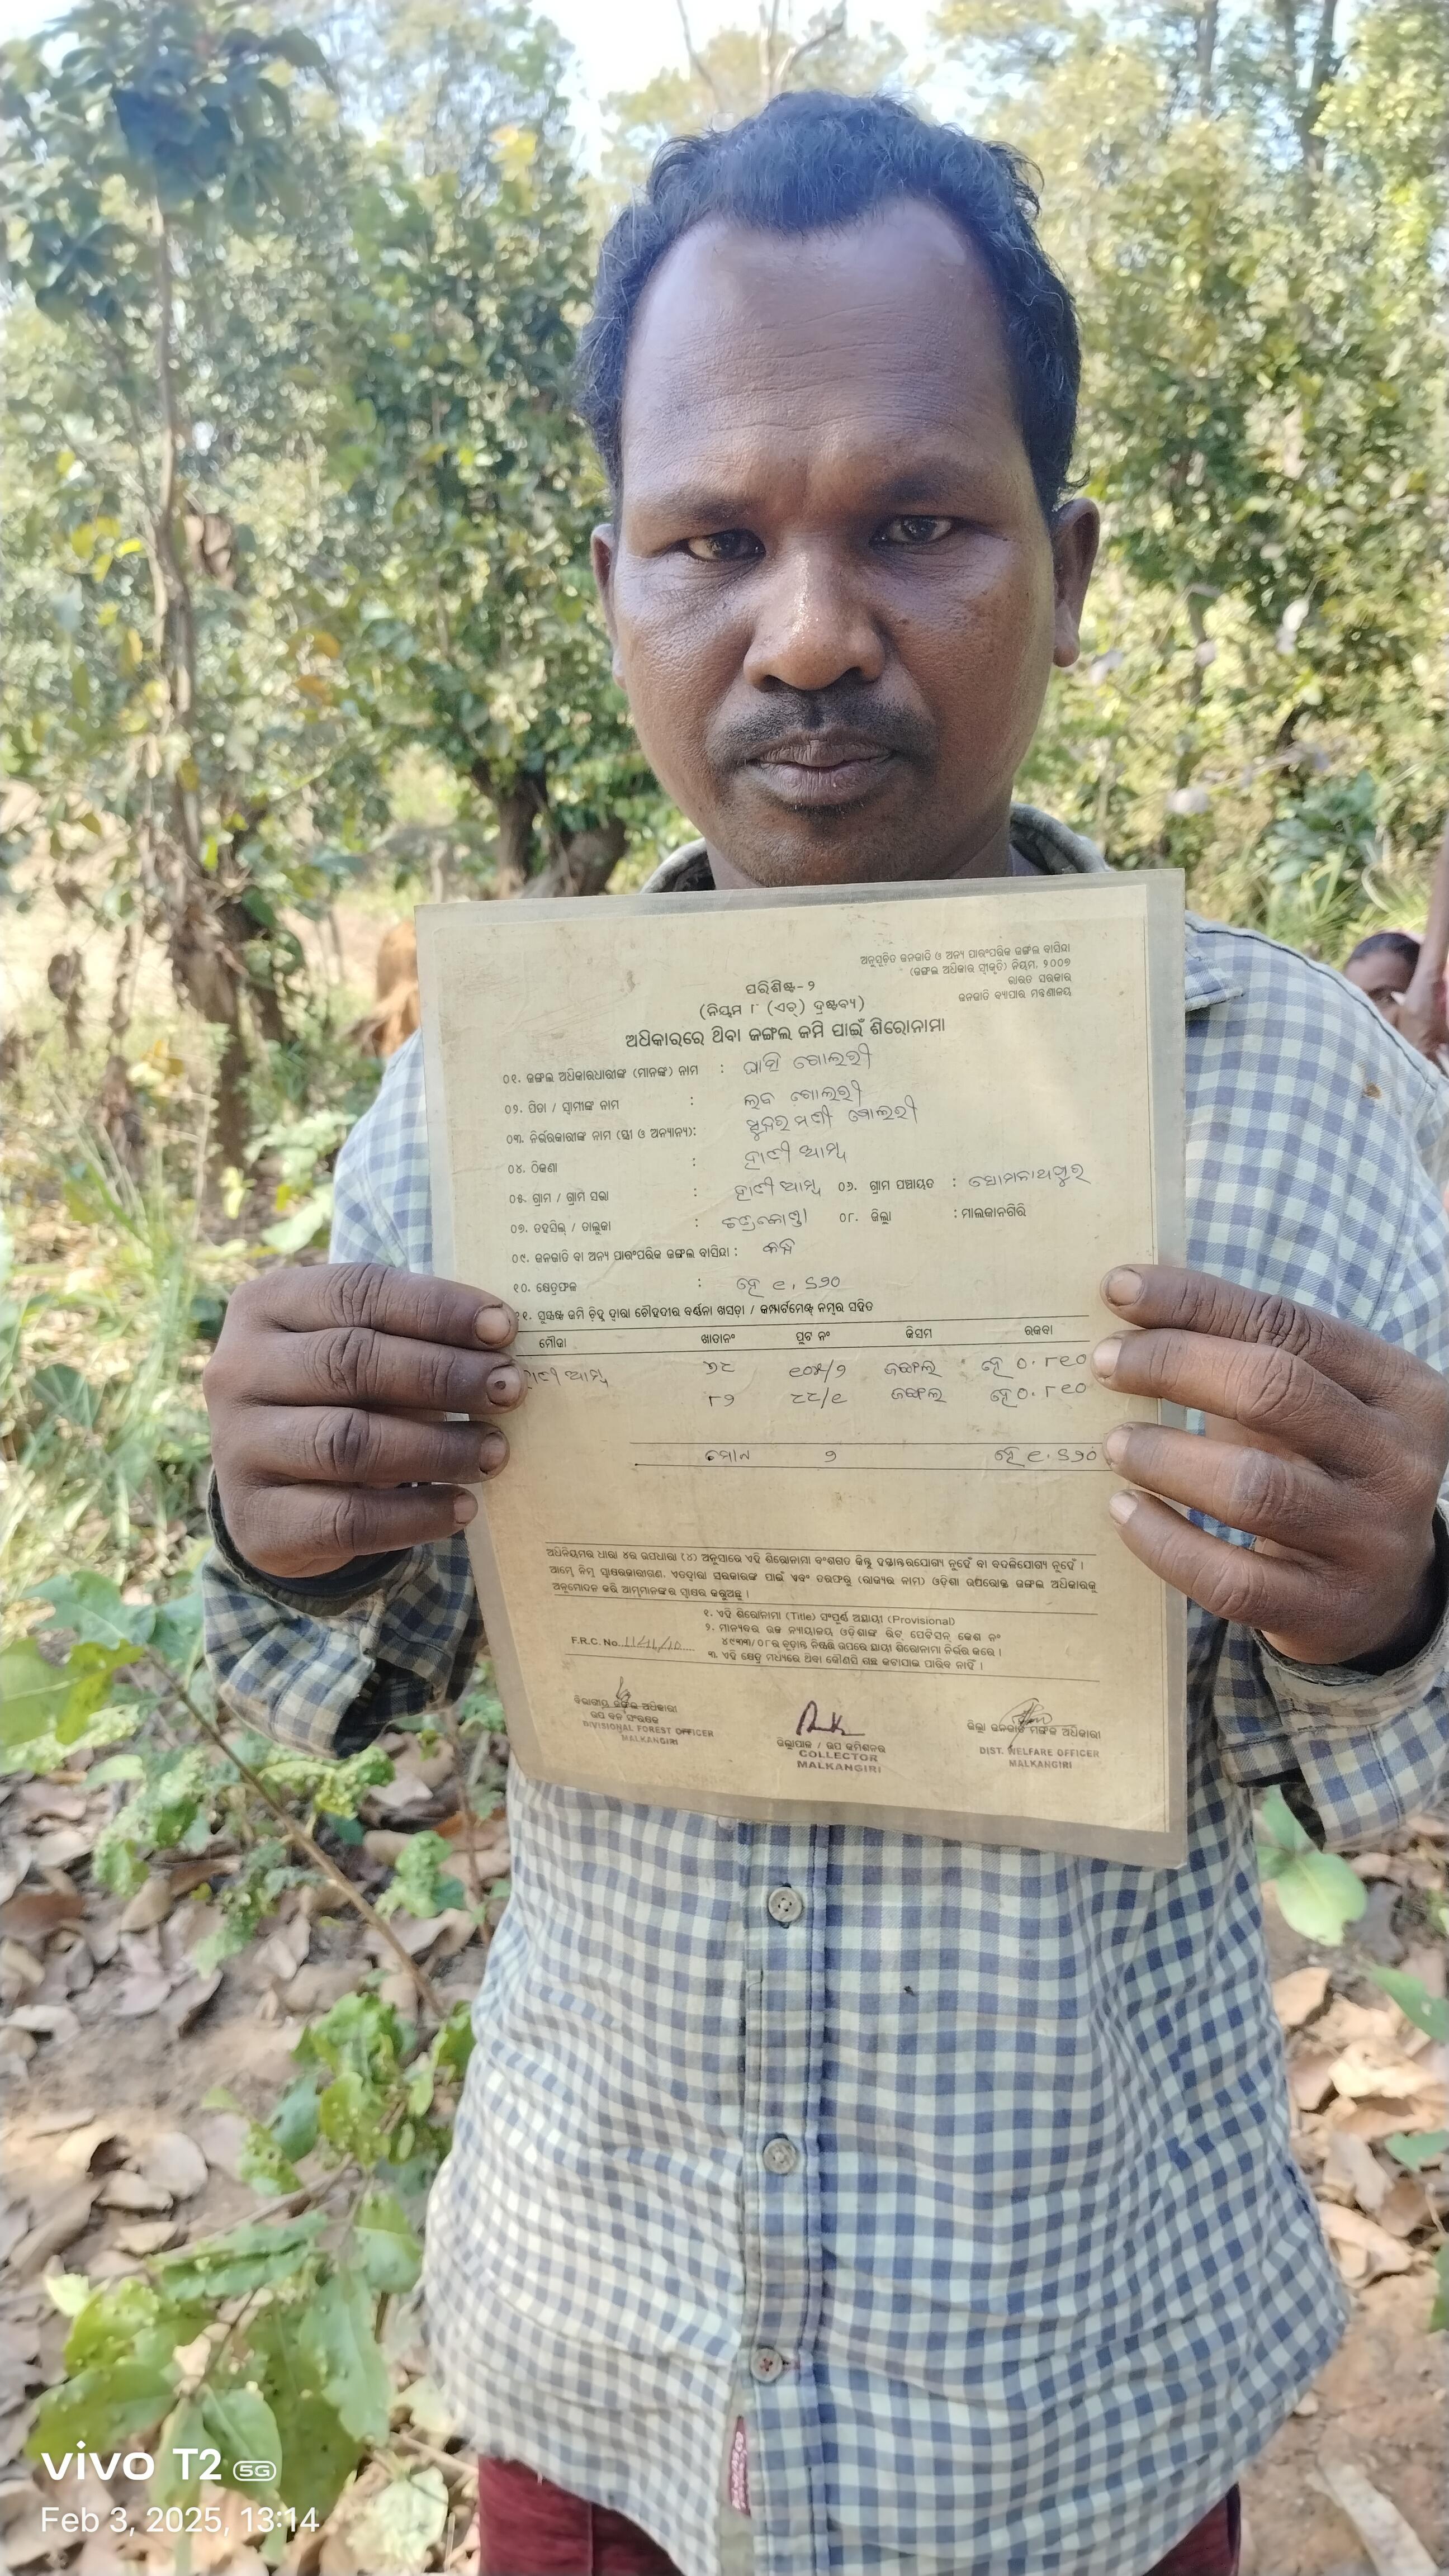 ଅନୁସୂଚିତ ଜନଜାତି ଓ ଅନ୍ୟ ପାରଂପରିକ ଜଙ୍ଗଲ ବାସିନ୍ଦା
(ଜଙ୍ଗଲ ଅଧିକାର ସ୍ୱୀକୃତି) ନିୟମ, ୨୦୦୭
ଭାରତ ସରକାର
ଜନଜାତି ବ୍ୟାପାର ମନ୍ତ୍ରଣାଳୟ
ପରିଶିଷ୍ଟ-୨
(ନିୟମ ୮ (ଏଚ୍) ଦ୍ରଷ୍ଟବ୍ୟ)
ଅଧିକାରରେ ଥିବା ଜଙ୍ଗଲ ଜମି ପାଇଁ ଶିରୋନାମା
୦୧. ଜଙ୍ଗଲ ଅଧିକାରଧାରୀଙ୍କ (ମାନଙ୍କ) ନାମ : ଗୋଲରୀ
୦୨. ପିତା / ସ୍ୱାମୀଙ୍କ ନାମ : ଲବ ଗୋଲରୀ
୦୩. ନିର୍ଭରକାରୀଙ୍କ ନାମ (ସ୍ତ୍ରୀ ଓ ଅନ୍ୟାନ୍ୟ): ସୁନ୍ଦରମଣୀ ଗୋଲରୀ
୦୪. ଠିକଣା : ହାତୀ ଆମ୍ବ
୦୫. ଗ୍ରାମ / ଗ୍ରାମ ସଭା : ହାତୀ ଆମ୍ବ ୦୬. ଗ୍ରାମ ପଞ୍ଚାୟତ : ସୋମନାଥପୁର
୦୭. ତହସିଲ୍ / ତାଲୁକା : ୦୮. ଜିଲ୍ଲା : ମାଲକାନଗିରି
୦୯. ଜନଜାତି ବା ଅନ୍ୟ ପାରଂପରିକ ଜଙ୍ଗଲ ବାସିନ୍ଦା :
୧୦. କ୍ଷେତ୍ରଫଳ : ହେ ୧.୬୨୦
୧୧. ସୁସ୍ପଷ୍ଟ ଜମି ଚିହ୍ନ ଦ୍ୱାରା ଚୌହଦୀର ବର୍ଣ୍ଣନା ଖସଡ଼ା / କମ୍ପାର୍ଟମେଣ୍ଟ ନମ୍ବର ସହିତ
ମୌଜା ଖାତାନଂ ପ୍ଲଟ ନଂ କିସମ ରକବା
ହାତୀ ଆମ୍ବ ୭୯ ୧୦୫/୨ ଜଙ୍ଗଲ ହେ ୦.୮୧୦
୮୨ ୯୯/୧ ଜଙ୍ଗଲ ହେ ୦.୮୧୦
ମୋଟ ୨ ହେ ୧.୬୨୦
ଅଧିନିୟମର ଧାରା ୪ର ଉପଧାରା (୪) ଅନୁସାରେ ଏହି ଶିରୋନାମା ବଂଶଗତ କିନ୍ତୁ ହସ୍ତାନ୍ତରଯୋଗ୍ୟ ନୁହେଁ ବା ବଦଳିଯୋଗ୍ୟ ନୁହେଁ ।
ଆମ୍ଭେ ନିମ୍ନ ସ୍ୱାକ୍ଷରକାରୀଗଣ, ଏତଦ୍ୱାରା ସରକାରଙ୍କ ପାଇଁ ଏବଂ ତରଫରୁ (ରାଜ୍ୟର ନାମ) ଓଡ଼ିଶା ଉପରୋକ୍ତ ଜଙ୍ଗଲ ଅଧିକାରକୁ
ଅନୁମୋଦନ କରି ଆମ୍ଭମାନଙ୍କର ସ୍ୱାକ୍ଷର କରୁଅଛୁ ।
୧. ଏହି ଶିରୋନାମା (Title) ସଂପୂର୍ଣ୍ଣ ଅସ୍ଥାୟୀ (Provisional)
୨. ମାନ୍ୟବର ଉଚ୍ଚ ନ୍ୟାୟାଳୟ ଓଡ଼ିଶାଙ୍କ ରିଟ୍ ପେଟିସନ୍ କେଶ ନଂ
୪୯୩୩/୦୮ର ଚୂଡ଼ାନ୍ତ ନିଷ୍ପତ୍ତି ଉପରେ ସ୍ଥାୟୀ ଶିରୋନାମା ନିର୍ଭର କରେ ।
F.R.C. No.
୩. ଏହି କ୍ଷେତ୍ର ମଧ୍ୟରେ ଥିବା କୌଣସି ଗଛ କଟାଯାଇ ପାରିବ ନାହିଁ ।
ବିଭାଗୀୟ ଜଙ୍ଗଲ ଅଧିକାରୀ
ଉପ ବନ ସଂରକ୍ଷକ
DIVISIONAL FOREST OFFICER
MALKANGIRI
ଜିଲ୍ଲାପାଳ / ଉପ କମିଶନର
COLLECTOR
MALKANGIRI
ଜିଲ୍ଲା ଜନଜାତି ମଙ୍ଗଳ ଅଧିକାରୀ
DIST. WELFARE OFFICER
MALKANGIRI
vivo T2 5G
Feb 3, 2025, 13:14